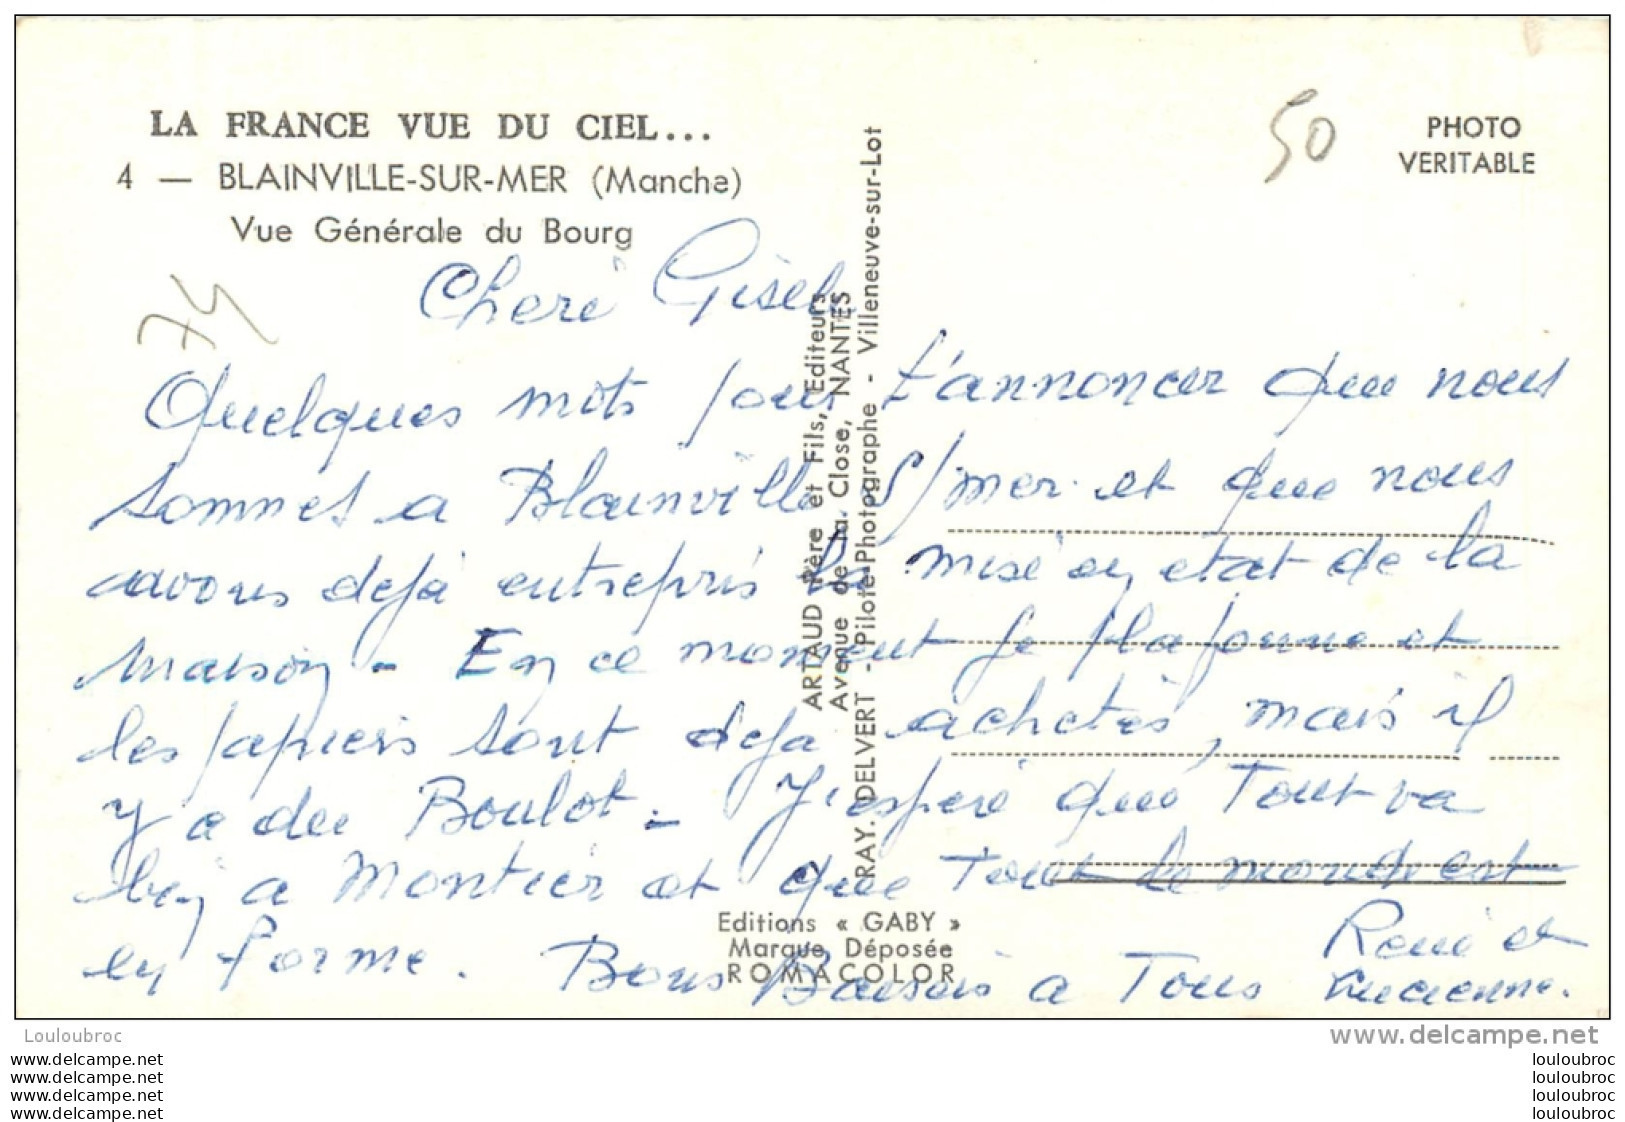 LA FRANCE VUE DU CIEL...
4 — BLAINVILLE-SUR-MER (Manche)
Vue Générale du Bourg
50
PHOTO
VERITABLE
74
Cheri Gisèle
Quelques mots pour t'annoncer que nous
sommes a Blainville S/mer et que nous
avons dejà entrepris la mise en etat de la
maison - En ce moment je plafonne et
les papiers sont deja achetés, mais il
y a du Boulot - J'espere que Tout va
bien a Montier et que Tout le monde est
en forme. Bons Baisers a Tous
René et
Lucienne.
ARTAUD Père et Fils, Editeurs
Avenue de la Close, NANTES
RAY. DELVERT - Pilote-Photographe - Villeneuve-sur-Lot
Editions « GABY »
Marque Déposée
ROMACOLOR
Louloubroc
www.delcampe.net
www.delcampe.net
www.delcampe.net
www.delcampe.net
www.delcampe.net
louloubroc
louloubroc
louloubroc
louloubroc